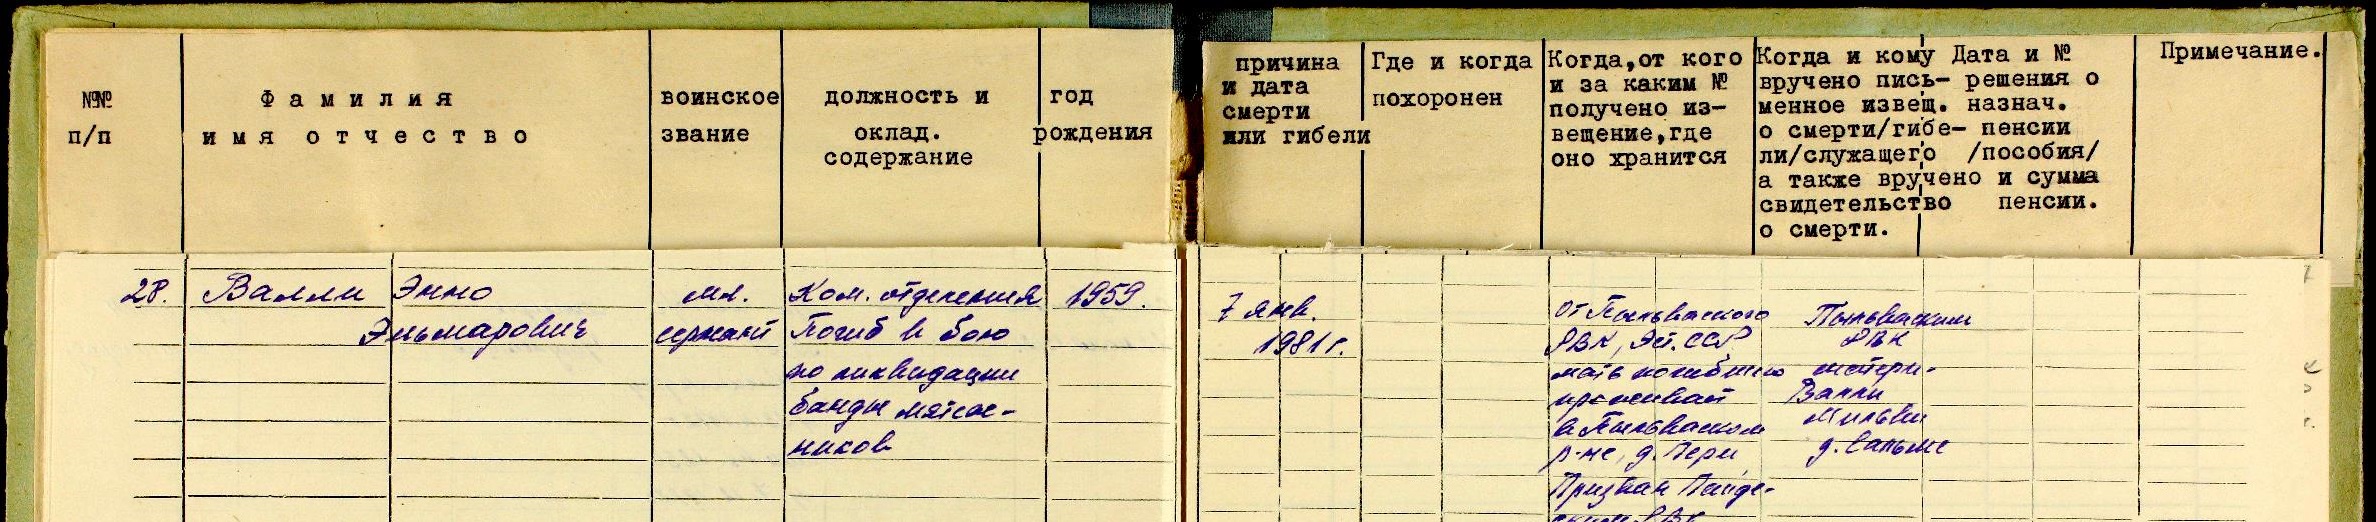 №№ п/п
Фамилия
имя отчество
воинское
звание
должность и
оклад.
содержание
год
рождения
причина
и дата
смерти
или гибели
Где и когда
похоронен
Когда, от кого
и за каким №
получено из-
вещение, где
оно хранится
Когда и кому
вручено пись-
менное извещ.
о смерти/гибе-
ли/служащего
а также вручено
свидетельство
о смерти.
Дата и №
решения о
назнач.
пенсии
/пособия/
и сумма
пенсии.
Примечание.
28. Валли Энно
Эльмарович
мл.
сержант
Ком. отделения
Погиб в бою
по ликвидации
банды мятеж-
ников
1959.
7 янв.
1981 г.
от Пыльваского
РВК, Эст. ССР
мать погибшего
проживает
в Пыльваском
р-не, д. Пери
Призван Пайде-
ским РВК
Пыльваским
РВК
матери-
Валли
Мильви